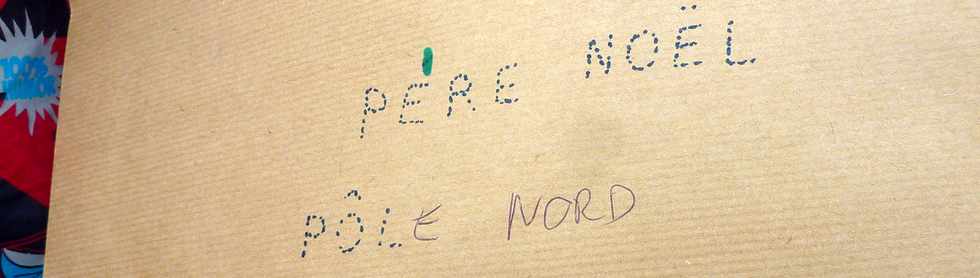 PÈRE NOËL
PÔLE NORD
100%